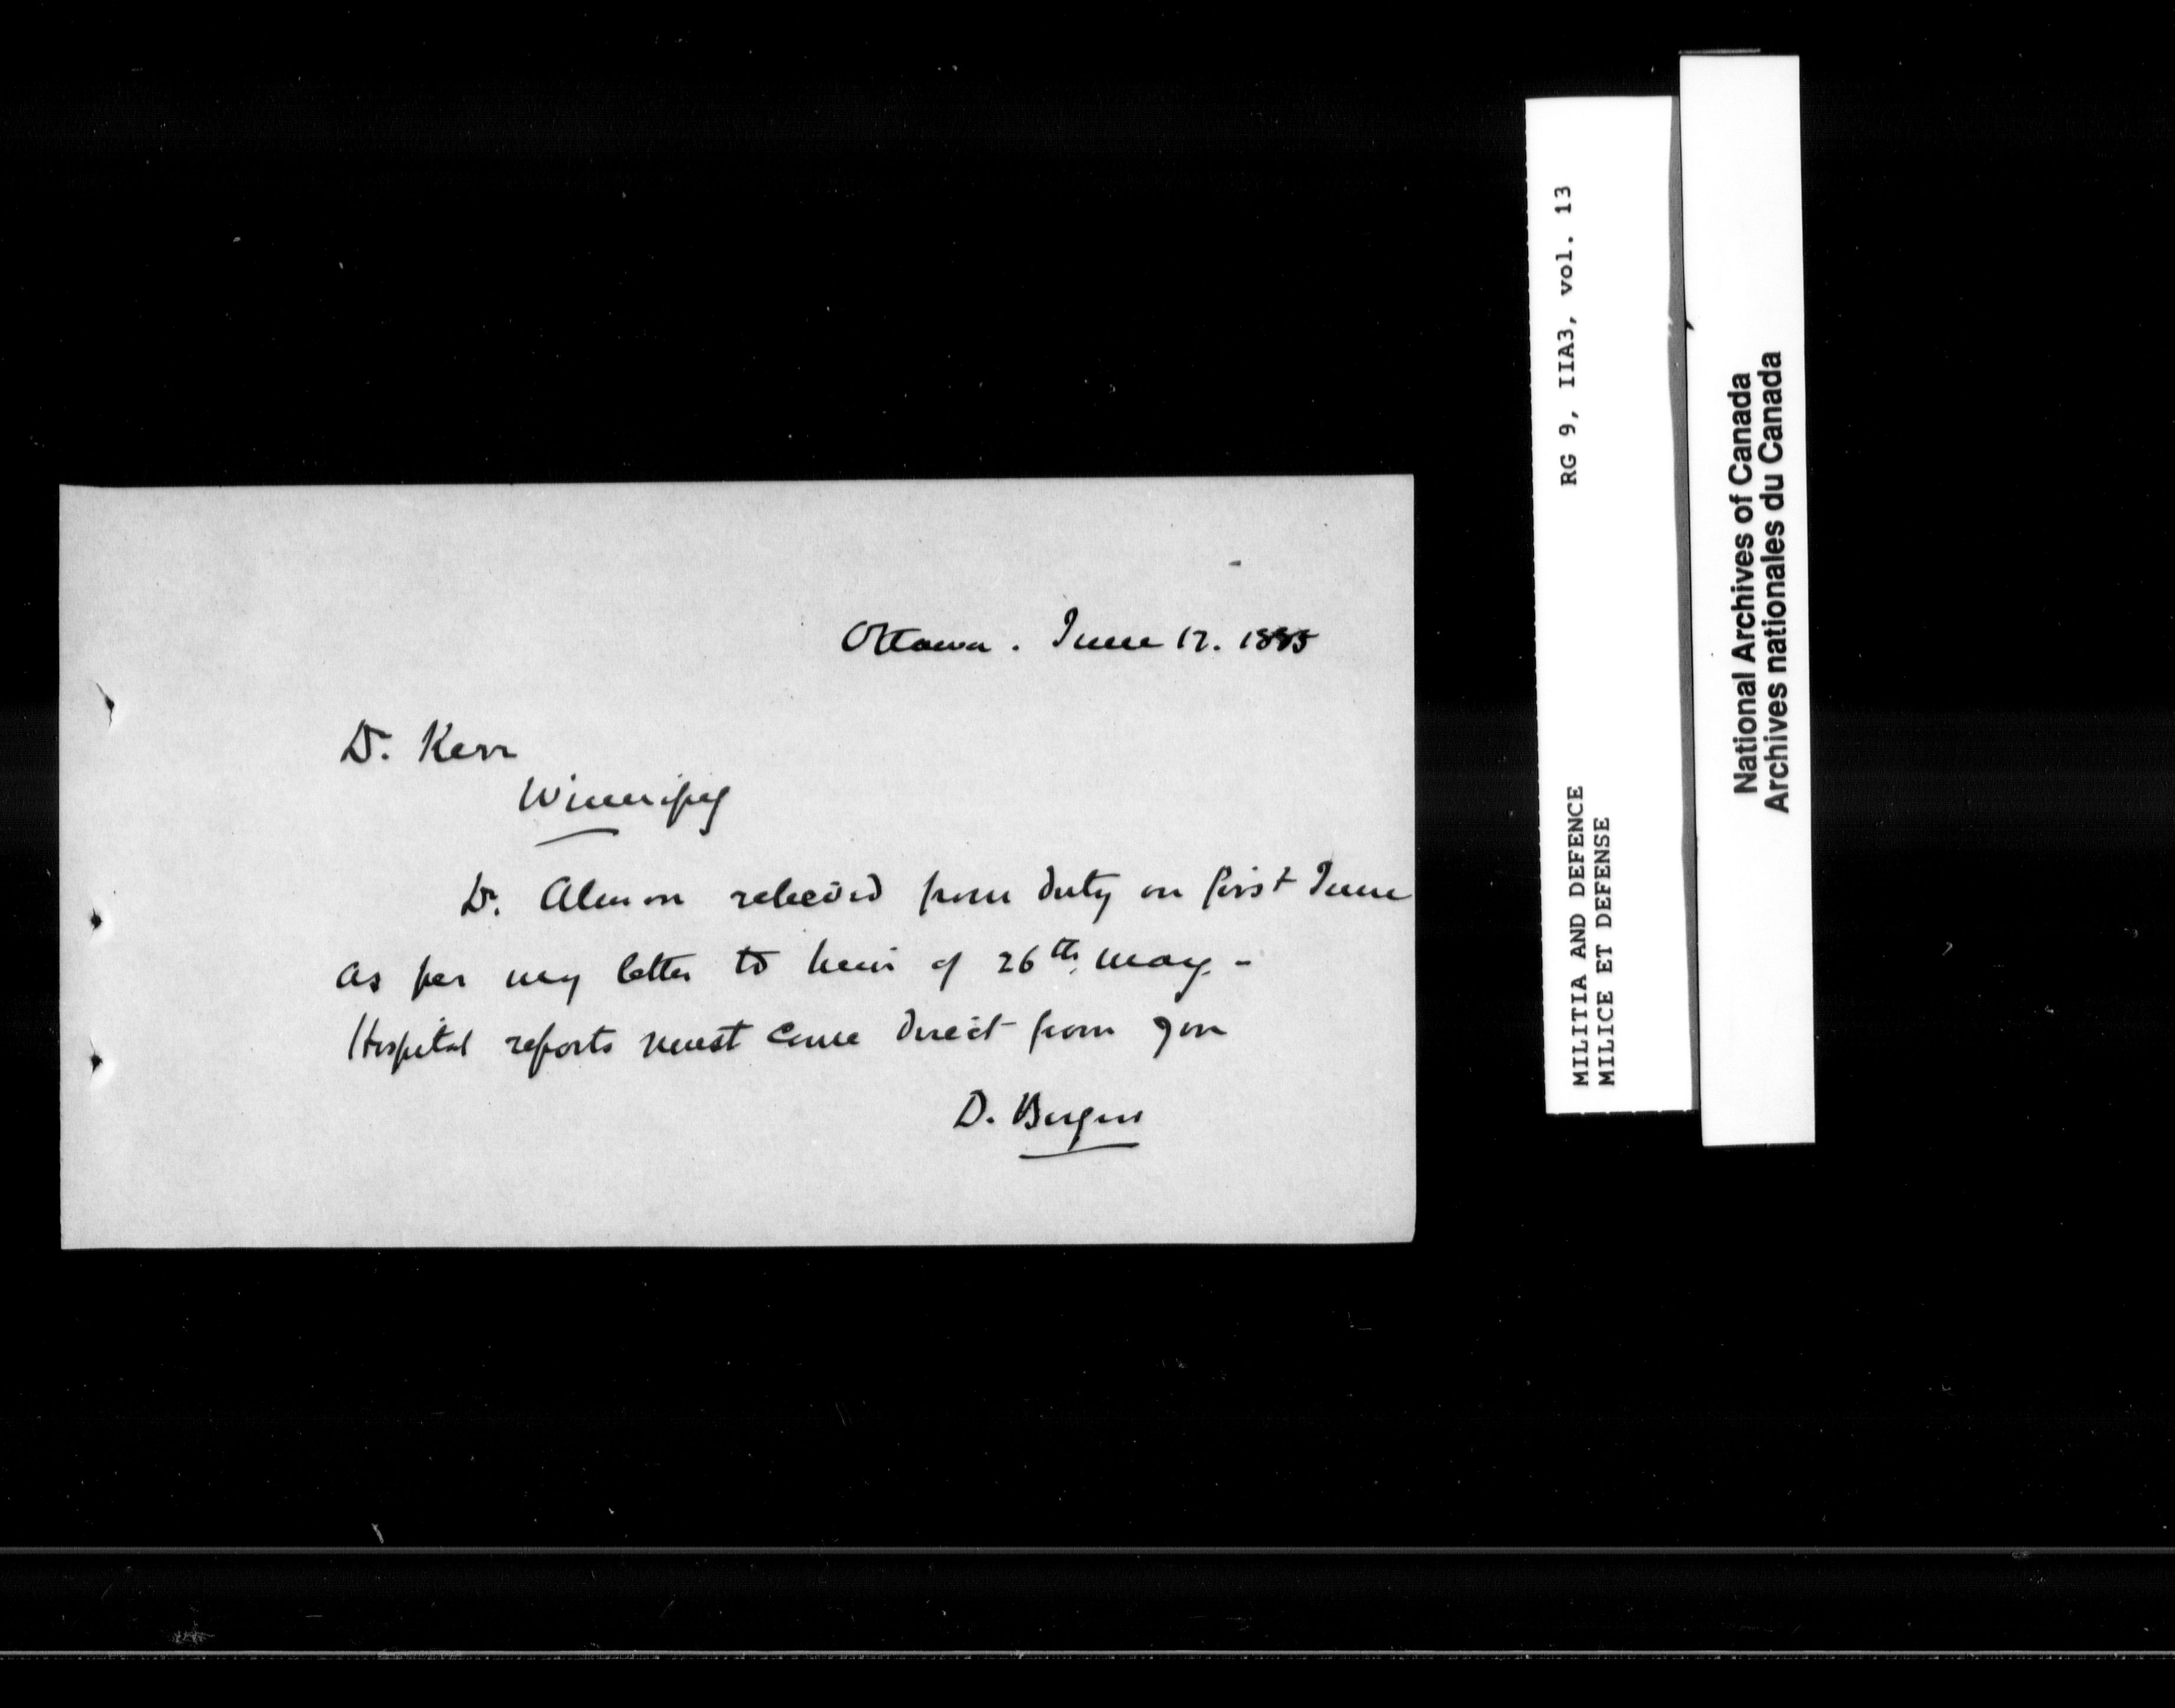 Ottawa. June 17. 1885
Dr. Kerr
Winnipeg
Dr. Almon relieved from duty on first June
as per my letter to him of 26th May -
Hospital reports must come direct from you
D. Bergin
RG 9, IIA3, vol. 13
MILITIA AND DEFENCE
MILICE ET DEFENSE
National Archives of Canada
Archives nationales du Canada